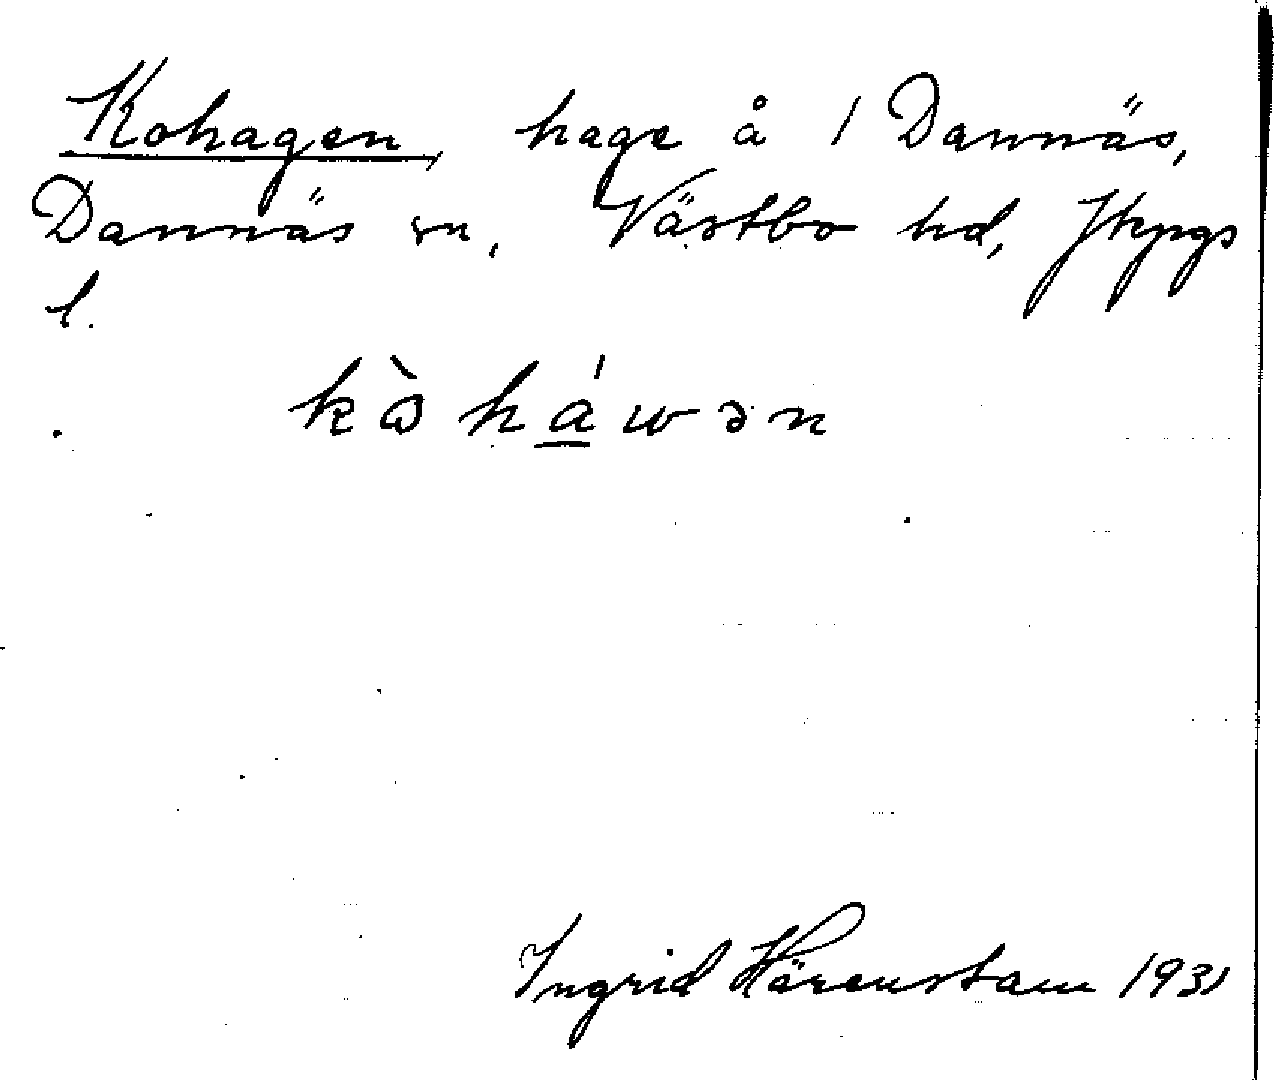 Kohagen, hage å 1 Dannäs,
Dannäs sn, Västbo hd, Jkpgs
l.
kὼháwən
Ingrid Härenstam 1931